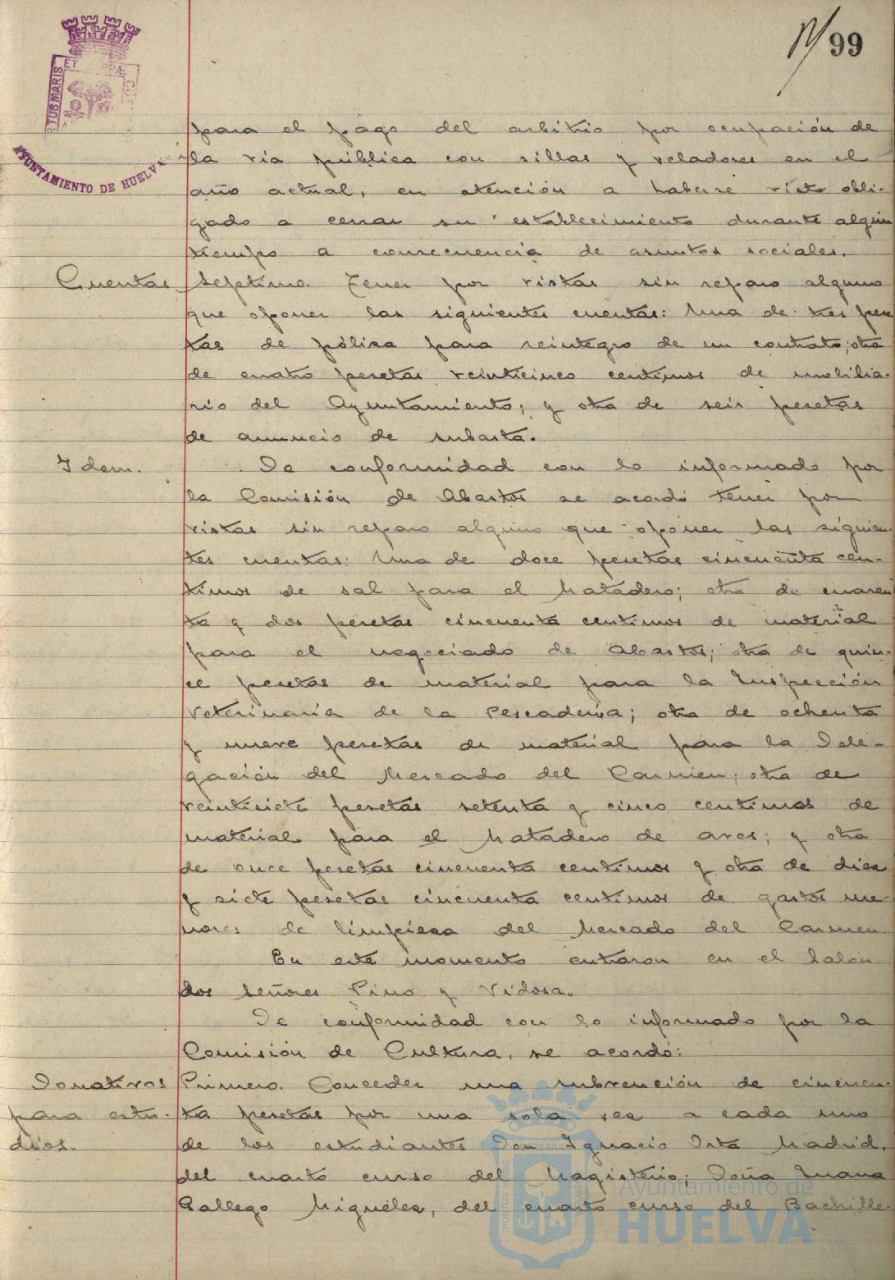 99
PORTUS MARIS ET TERRAE CUSTODIA
AYUNTAMIENTO DE HUELVA
para el pago del arbitrio por ocupación de
la via pública con sillas y veladores en el
año actual, en atención a haberse visto obli-
gado a cerrar su establecimiento durante algun
tiempo a consecuencia de asuntos sociales.
Cuentas Septimo. Tener por vistas sin reparo alguno
que oponer las siguientes cuentas: Una de tres pese
tas de póliza para reintegro de un contrato; otra
de cuatro pesetas veinticinco centimos de mobilia-
rio del Ayuntamiento; y otra de seis pesetas
de anuncio de subasta.
Idem. De conformidad con lo informado por
la Comisión de Abastos se acordó tener por
vistas sin reparo alguno que oponer las siguien-
tes cuentas: Una de doce pesetas cincuenta cen-
timos de sal para el Matadero; otra de cuaren
ta y dos pesetas cincuenta centimos de material
para el negociado de Abastos; otra de quin-
ce pesetas de material para la Inspección
Veterinaria de la Pescaderia; otra de ochenta
y nueve pesetas de material para la Dele-
gación del Mercado del Carmen; otra de
veintisiete pesetas setenta y cinco centimos de
material para el Matadero de aves; y otra
de once pesetas cincuenta centimos y otra de diez
y siete pesetas cincuenta centimos de gastos me-
nores de limpieza del Mercado del Carmen.
En este momento entraron en el Salón
los Señores Pino y Vidosa.
De conformidad con lo informado por la
Comisión de Cultura, se acordó:
Donativos Primero. Conceder una subvención de cincuen-
para estu- ta pesetas por una sola vez a cada uno
dios. de los estudiantes Don Ignacio Orta Madrid,
del cuarto curso del Magisterio; Doña Juana
Gallego Miguelez, del cuarto curso del Bachille-
Ayuntamiento de
HUELVA